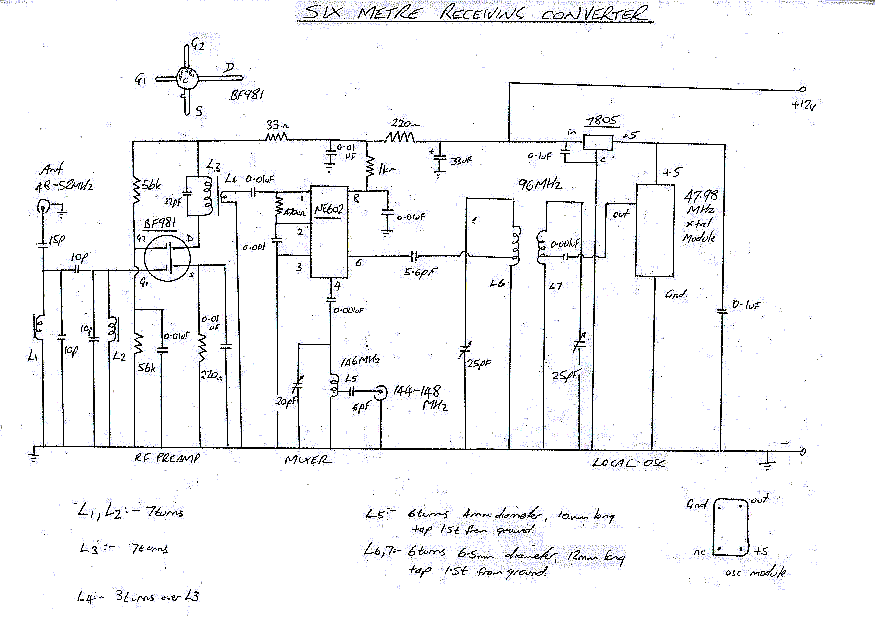 SIX METRE RECEIVING CONVERTER
G2
G1
D
C
S
BF981
+12v
33Ω
220Ω
7805
in
+5
0.01
uF
33uF
0.1uF
c
Ant
48-52MHz
56k
L3
L4
0.01uF
1kΩ
96MHz
+5
47.98
MHz
xtal
Module
22pF
NE602
1
8
0.01uF
out
BF981
15p
G2
D
2
0.001
0.001uF
10p
G1
S
3
6
5.6pF
L6
L7
4
Gnd
0.001uF
0.1uF
L1
10p
10p
L2
0.01uF
0.01
uF
56k
220Ω
146MHz
L5
20pF
6pF
144-148
MHz
25pF
25pF
RF PREAMP
MIXER
LOCAL OSC
-
L1, L2:- 7turns
L3:- 7turns
L4- 3turns over L3
L5:- 6turns 4mm diameter, 10mm long
tap 1.5t from ground.
L6,7:- 6turns 6.5mm diameter, 12mm long
tap 1.5t from ground.
Gnd
out
nc
+5
osc module